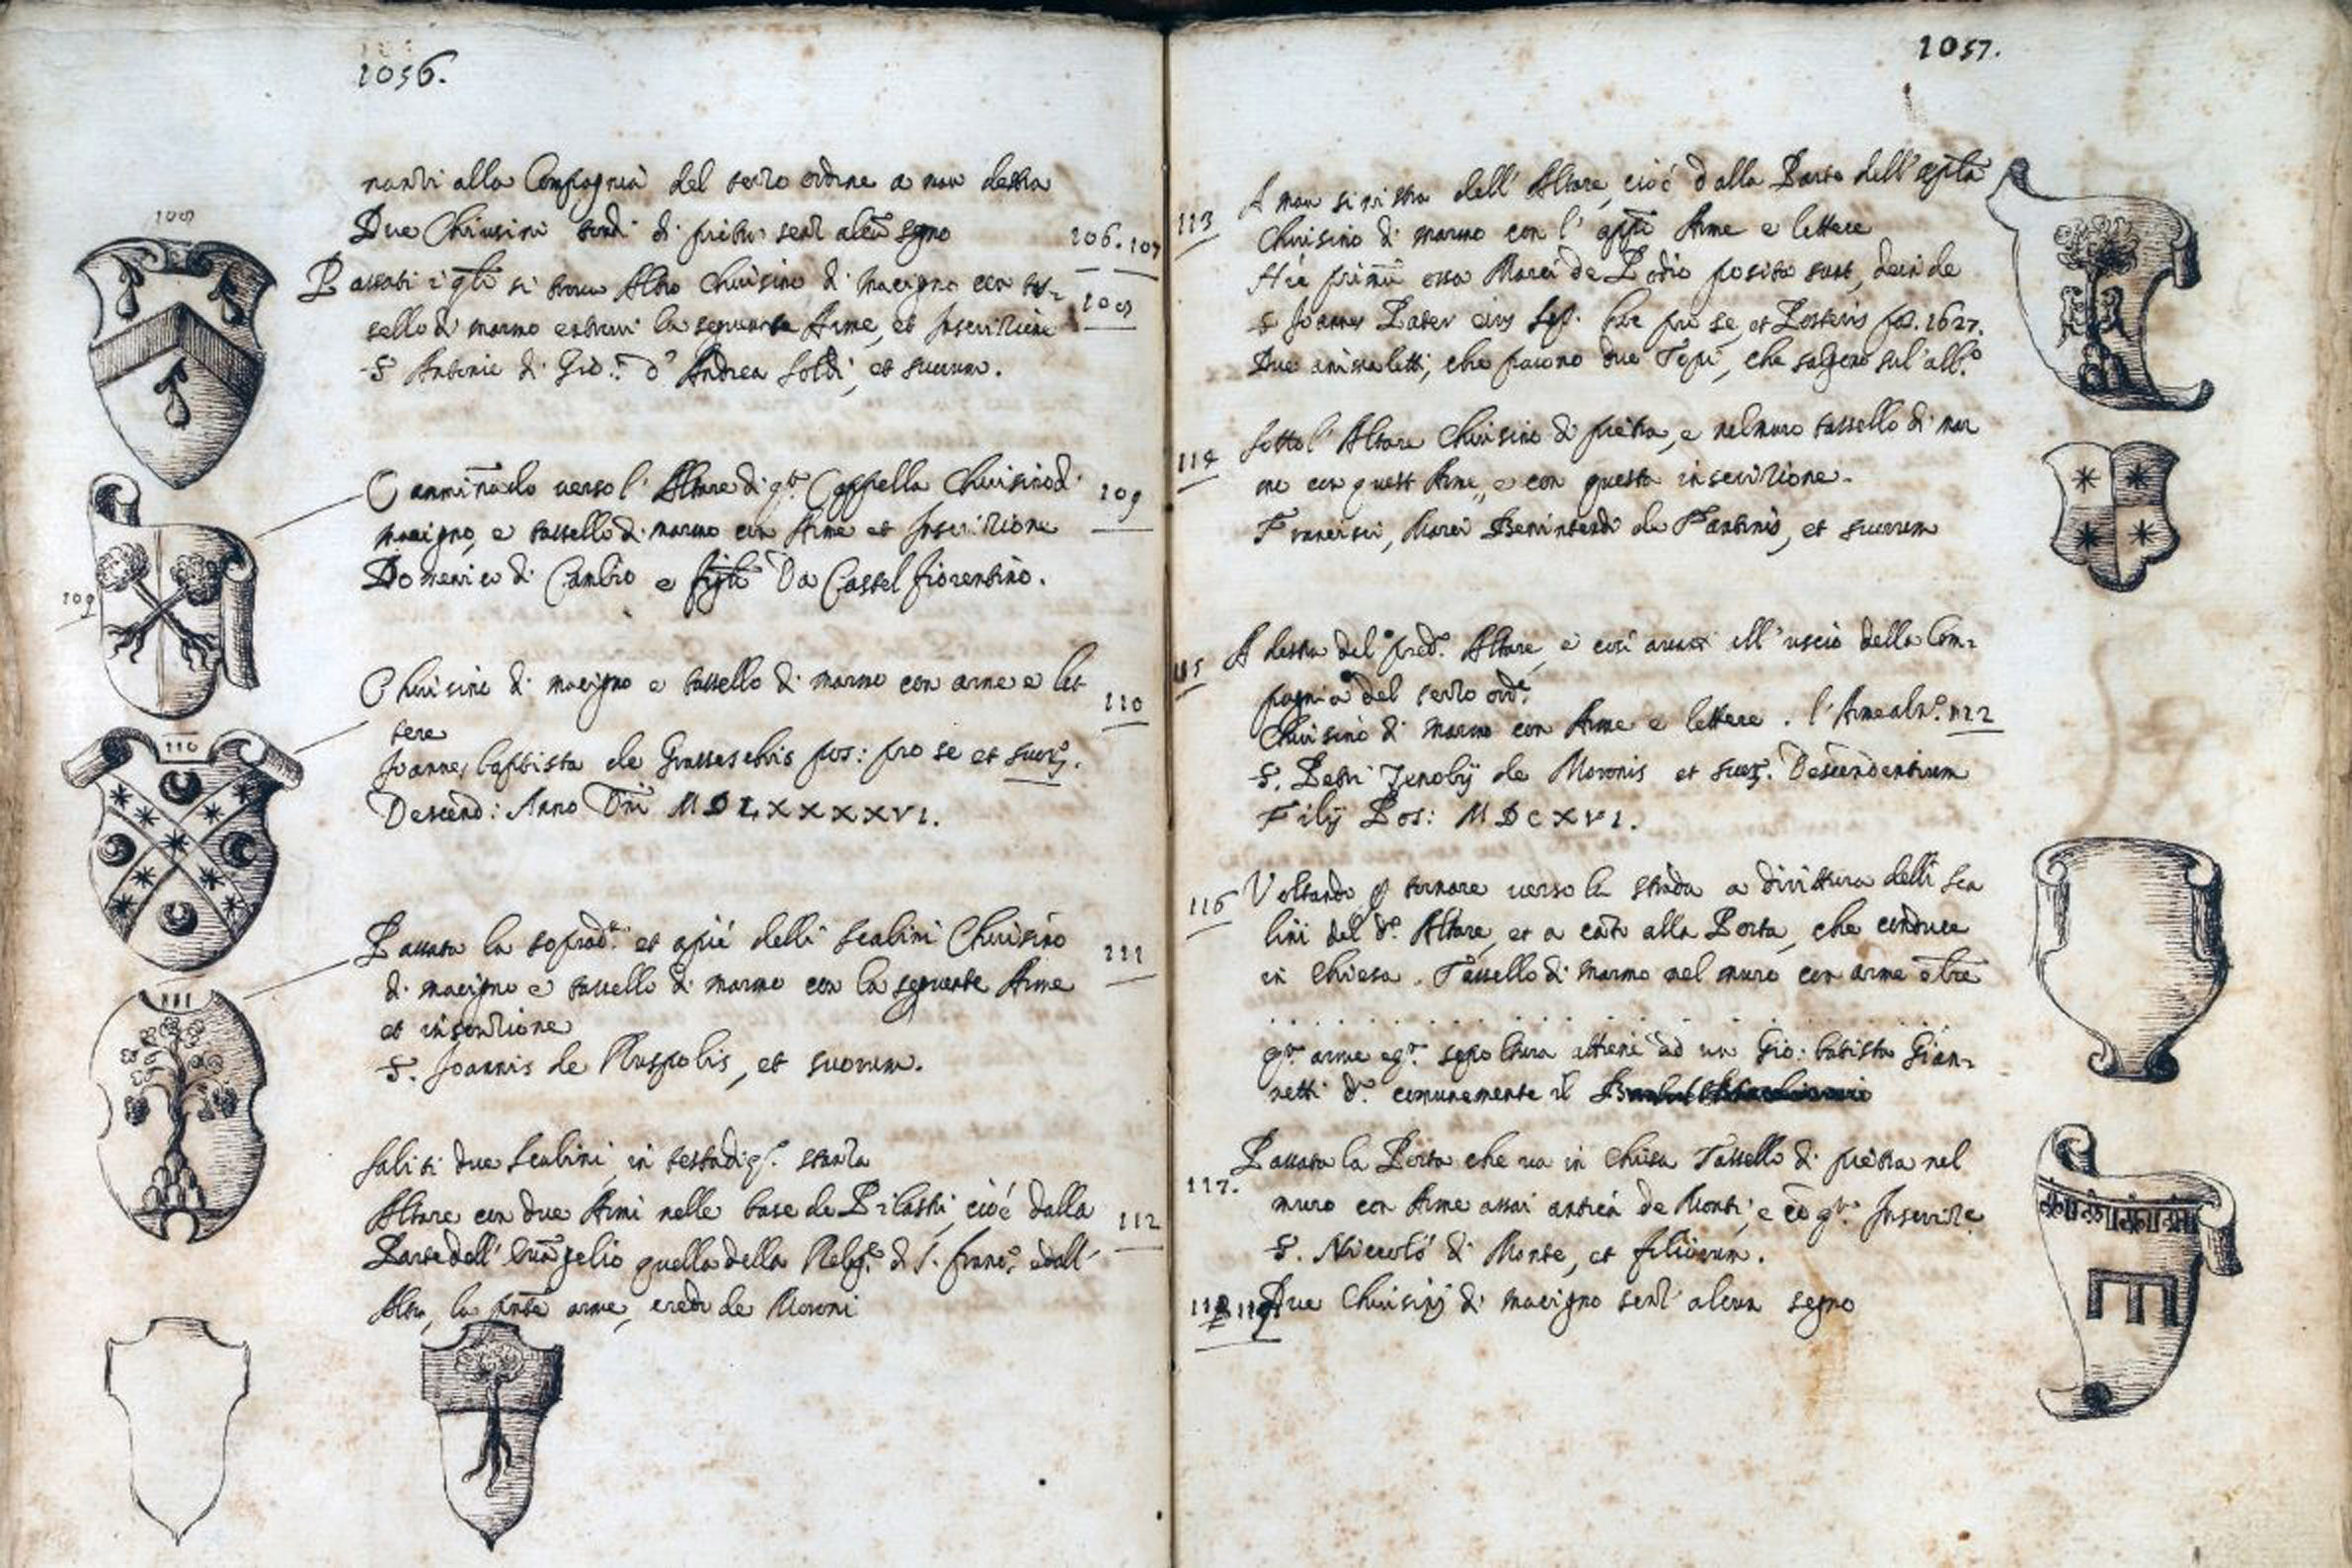 1056.
nanzi alla Compagnia del terzo ordine a man destra
Due Chiusini tondi di pietra senz' alcũ segno
106. 107
Passati i qli si trova Altro Chiusino di macigno con tas-
108
sello di marmo entrovi la seguente Arme, et Inscrizione
S Antonio di Gio: d' Andrea Soldi, et suorum.
108
Camminãdo verso l' Altare di qta Cappella Chiusino di
109
macigno, e tassello di marmo con Arme et Inscrizione
Domenico di Cambio e figli Da Castel fiorentino.
109
Chiusino di macigno e tassello di marmo con arme e let
110
tere
Joannes baptista de Grassessebis pos: pro se et suorz.
Descend: Anno Dni MDLXXXXVI.
110
Passata la soprad.ta et apié delli Scalini Chiusino
111
di macigno e tassello di marmo con la seguente Arme
et inscrizione
S. Joannis de Ruspolis, et suorum.
111
Saliti due Scalini, in testa di qs. stanza
Altare con due Armi nelle base de Pilastri, cioé dalla
112
Parte dell' Evãgelio quella della Relige di S. franco, e dall'
Altra, la pnte arme, credo de Moroni
1057.
A man sinistra dell' Altare, cioé dalla Parte dell' epla
113
Chiusino di marmo con l' appa Arme e lettere
Hic primũ ossa Marci de Podio posita sunt, deinde
S Joannes Pater eius Sep. hoc pro se, et Posteris po. 1627.
Due animaletti, che paiono due Topi, che salgono sul' albo
Sotto l' Altare Chiusino di pietra, e nel muro tassello di mar
114
mo con quest Arme, e con questa inscrizione.
Francisci, Marci Benintendi de Fantinis, et suorum
A destra del pred.o Altare, e cosi avanti all' uscio della Com-
115
pagnia del terzo orde
Chiusino di marmo con Arme e lettere. l' Arme al no. 112
S. Petri Zenobij de Moronis et suorz. Descendentium
Filij Pos: MDCXVI.
Voltando p tornare verso la strada a dirittura delli Sca
116
lini del do. Altare, et a cãto alla Porta, che conduce
in Chiesa. Tassello di marmo nel muro con arme e lre
. . . . . . . . . . . . . . . .
qta arme e qta sepoltura attiene ad un Gio: batista Gian-
netti do. comunemente il
Passata la Porta che va in Chiesa Tassello di pietra nel
117.
muro con Arme assai antica de Monti, e cõ qta Inscrize
S. Niccoló di Monte, et filiorum.
118 119
Due Chiusini di macigno senz' alcun segno